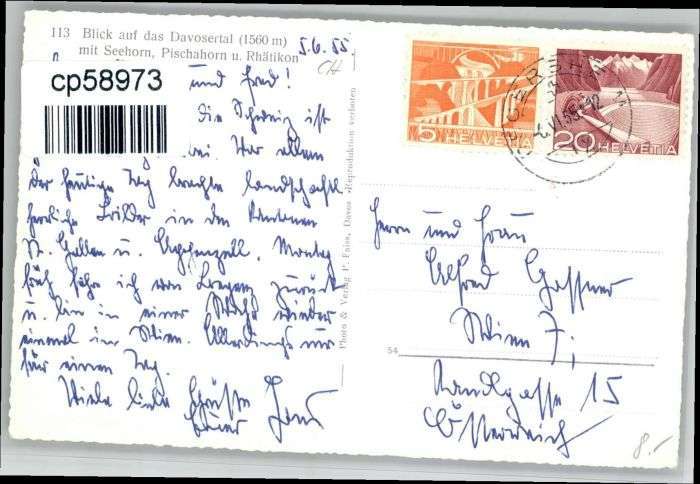 113 Blick auf das Davosertal (1560 m)
mit Seehorn, Pischahorn u. Rhätikon
5.6.55.
CH
cp58973
und Fred!
Die Schweiz ist
bei vor allem
Der heutige Tag brachte landschaftl.
herrliche Bilder in den Kantonen
St. Gallen u. Appenzell. Montag
früh fahre ich von Lugano zurück
u. bin in einer Woche wieder
einmal in Wien. Allerdings nur
für einen Tag.
Viele liebe Grüsse
Euer
Photo & Verlag P. Faiss, Davos Reproduktion verboten
5 HELVETIA
20 HELVETIA
Herrn und Frau
Alfred Gassner
Wien 7;
54
Kandlgasse 15
Österreich
8.-